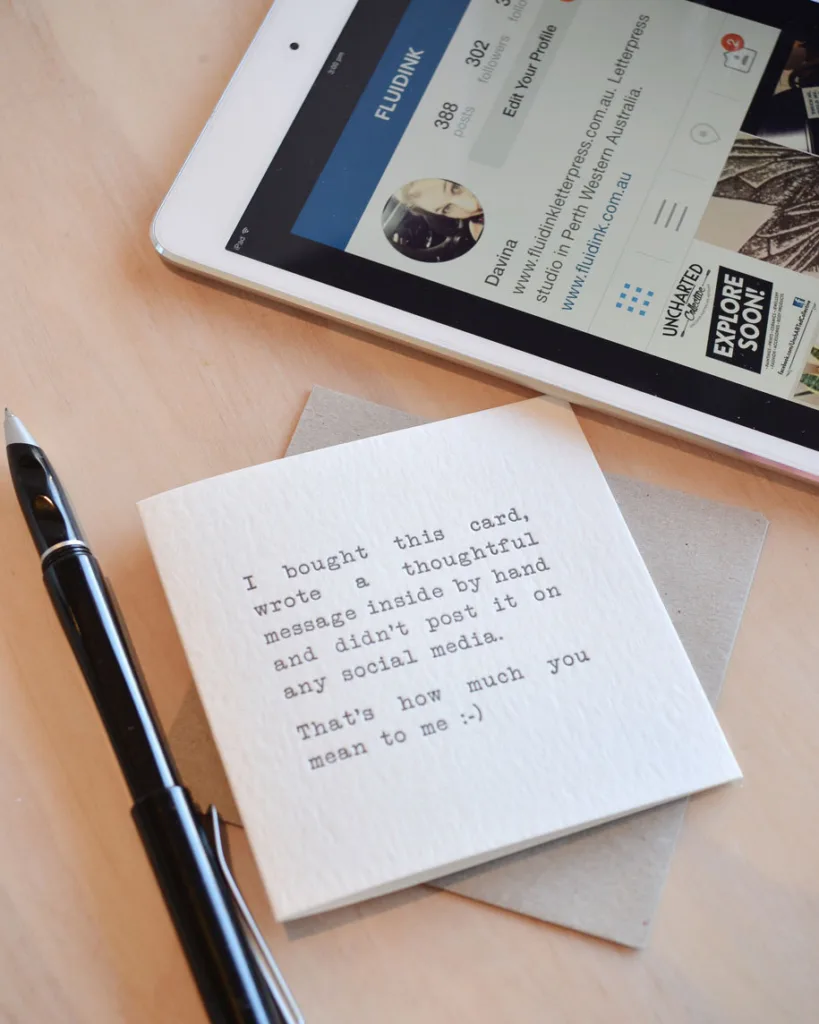 iPad
3:00 pm
FLUIDINK
388
posts
302
followers
Edit Your Profile
2
Davina
www.fluidinkletterpress.com.au. Letterpress
studio in Perth Western Australia.
www.fluidink.com.au
UNCHARTED
Collective
EXPLORE
SOON!
I bought this card,
wrote a thoughtful
message inside by hand
and didn't post it on
any social media.
That's how much you
mean to me :-)